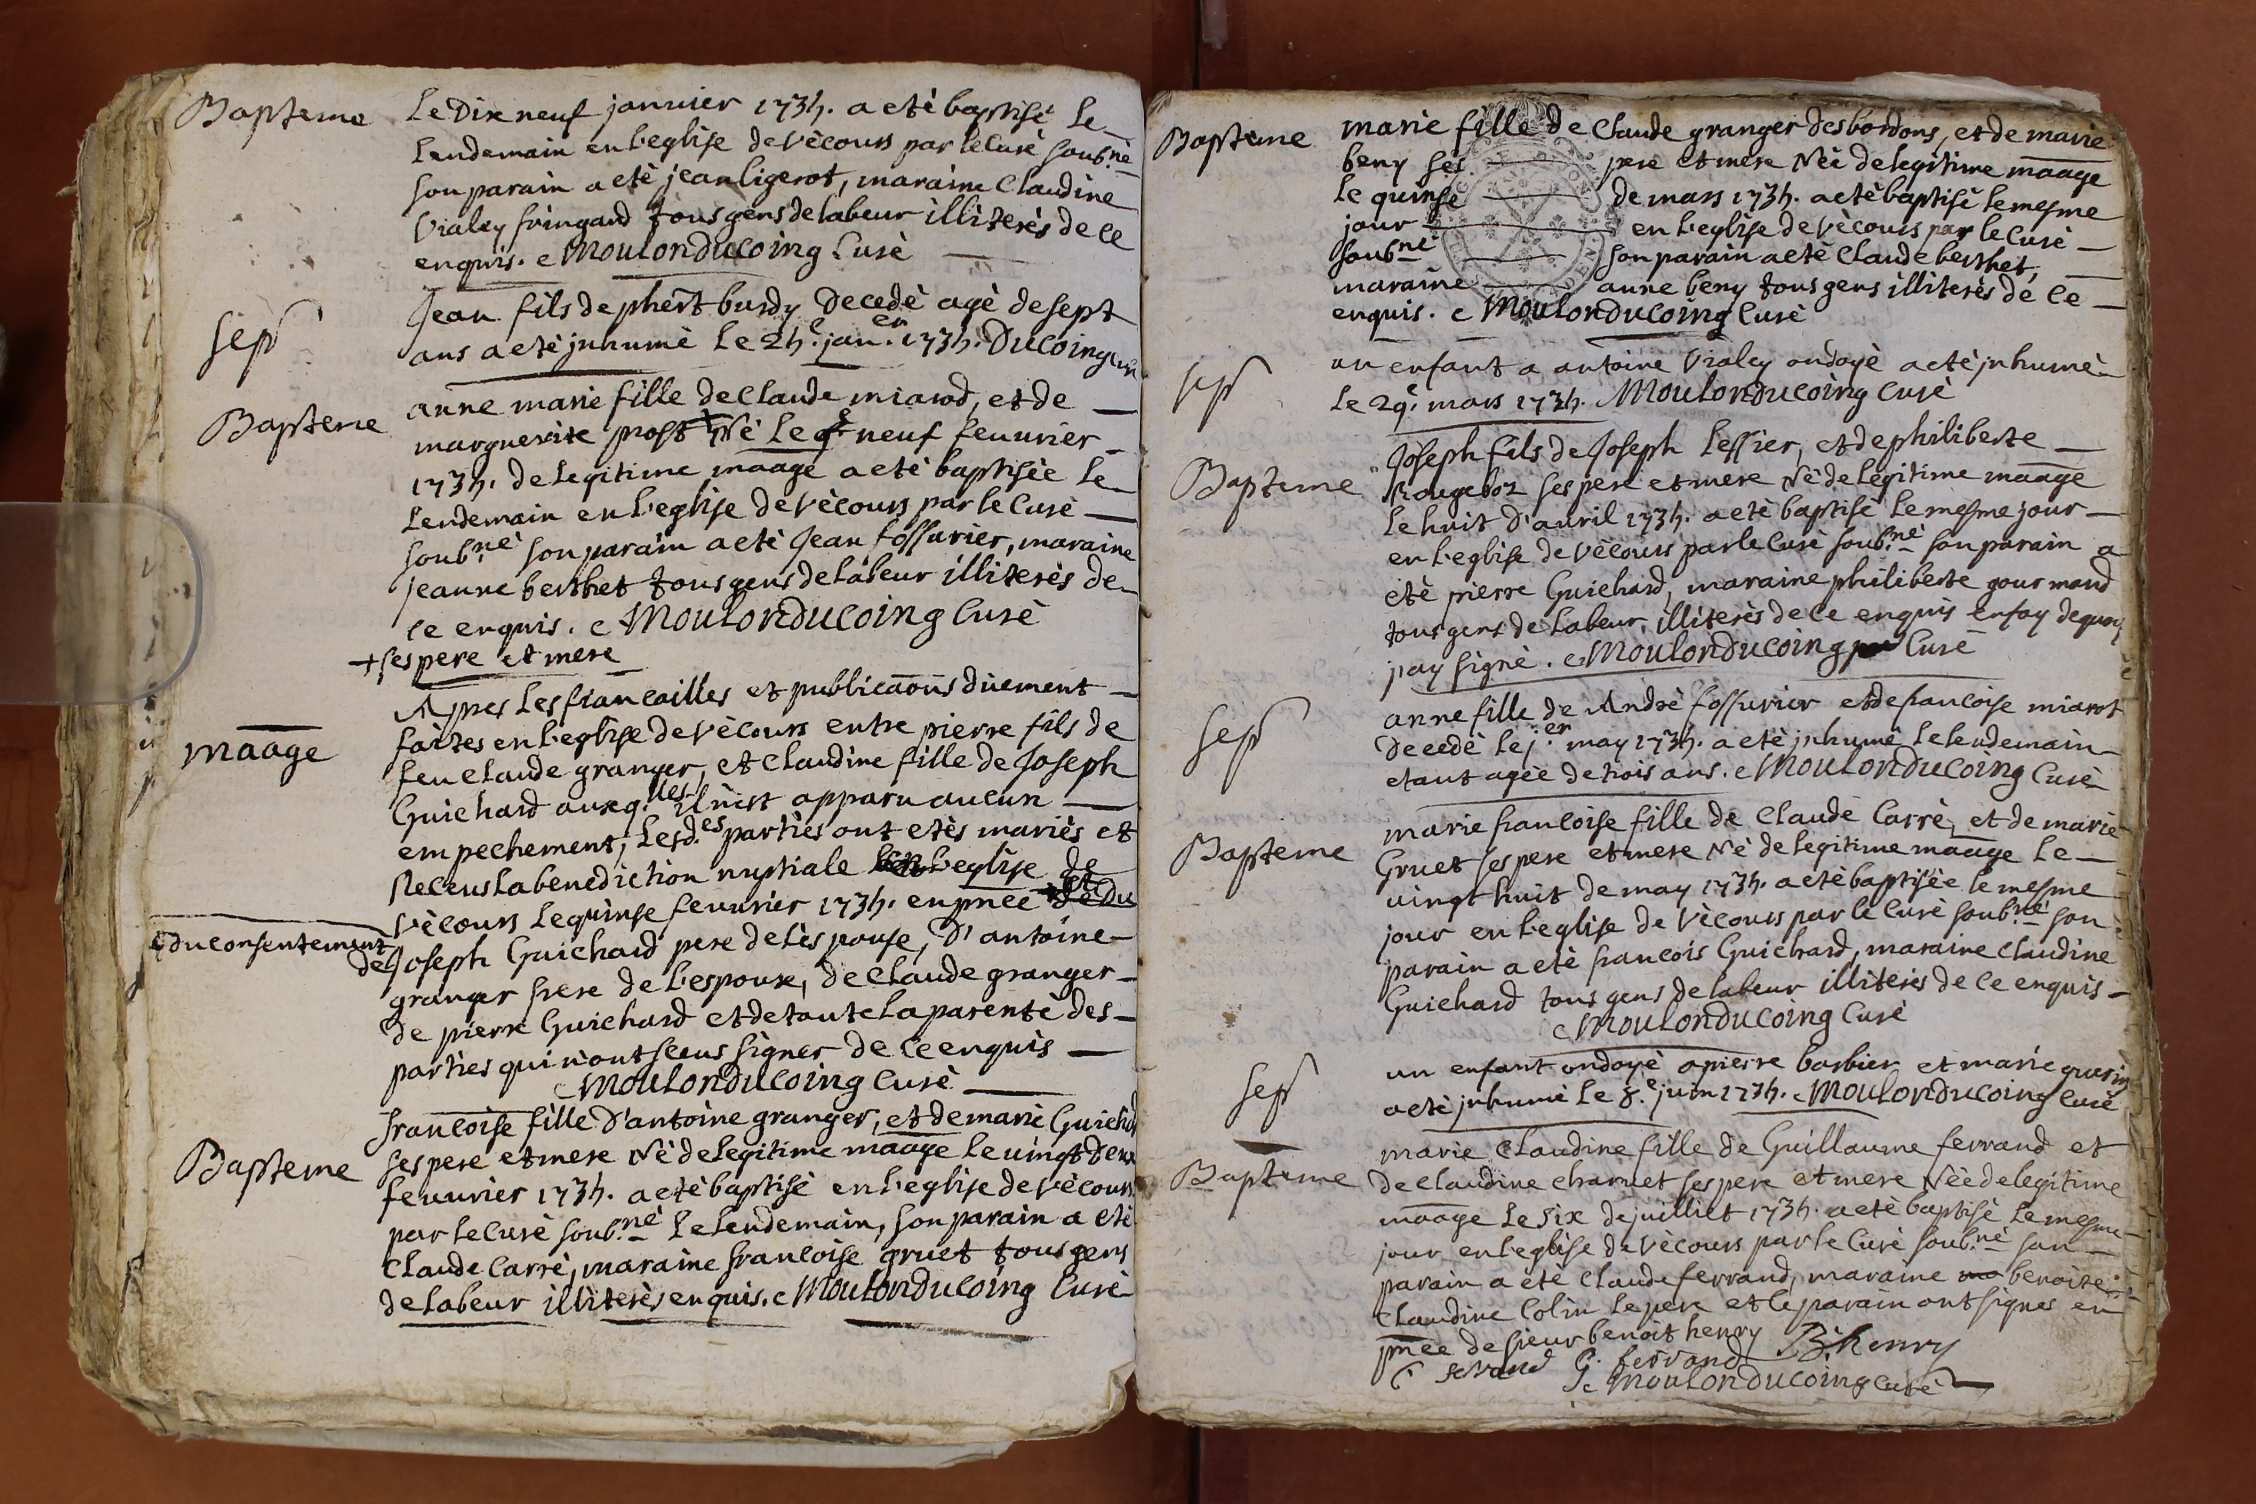 Bapteme
Le Dix neuf januier 1734. a etè baptisé Le
Lendemain en l'eglise de vècours par le Curè soub.nè
son parain a etè jean ligerot, maraine Claudine
Vialey fringand tous gens de labeur illiterès de ce
enquis. Moulonducoing Curè
sep
Jean fils de phert burdy Decedè agè de sept
ans a etè jnhumè Le 24.e jan.er 1734. Ducoing
Bapteme
anne marie fille de Claude miarod, et de
marguerite prost + Nè Le neuf feuurier
1734. de legitime maage a etè baptisèe Le
Lendemain en l'eglise de vècours par le Curè
soub.nè son parain a etè Jean fossurier, maraine
jeanne berthet tous gens de labeur illiterès de
ce enquis. Moulonducoing Curè
+ ses pere et mere
maage
Apres Les fiancailles et publicaons dùement
faites en l'eglise de vècours entre pierre fils de
feu Claude granger, et Claudine fille de Joseph
Guichard auxq.lles il n'est apparu aucun
empechement, Lesd.es parties ont etès mariès et
Receus La benediction nuptiale l'eglise de
vècours Le quinse feuurier 1734. en pnce et du
+ du consentement de
Joseph Guichard pere de l'èspouse, D'antoine
granger frere de l'espoux, de Claude granger
de pierre Guichard et de toute La parentè des
parties qui n'ont sceus signer de ce enquis
Moulonducoing Curè
francoise fille D'antoine granger, et de marie Guichard
Bapteme
ses pere et mere Nè de legitime maage Le uingt deux
feuurier 1734. a etè baptisè en l'eglise de vècours
par le Curè soub.nè Le Lendemain, son parain a etè
Claude Carrè, maraine francoise gruet tous gens
de Labeur illiterès enquis. Moulonducoing Curè
Bapteme
marie fille de Claude granger des bordons, et de marie
beny ses pere et mere Nèe de legitime maage
le quinse de mars 1734. a etè baptisè le mesme
jour en l'eglise de vècours par le Curè
soub.nè son parain a etè Claude berthet,
maraine anne beny tous gens illiterès de ce
enquis. Moulonducoing Curè
sep
un enfant a antoine Vialey ondoyè a etè jnhumè
Le 29.e mars 1734. Moulonducoing Curè
Bapteme
Joseph fils de Joseph Tessier, et de philiberte
Rougebor ses pere et mere Nè de legitime maage
Le huit d'auril 1734. a etè baptisè Le mesme jour
en l'eglise de vècours par le Curè soub.nè son parain a
etè pierre Guichard, maraine philiberte gourmand
tous gens de Labeur, illiterès de ce enquis en foy de quoy
j'ay signè. Moulonducoing Curè
sep
anne fille de Andrè fossurier et de francoise miarot
Decedè le j.er may 1734. a etè jnhumè Le Lendemain
etant agèe de trois ans. Moulonducoing Curè
Bapteme
marie francoise fille de Claude Carrè, et de marie
Gruet ses pere et mere Nè de legitime maage Le
uingt huit de may 1734. a etè baptisèe le mesme
jour en l'eglise de vècours par le Curè soub.nè son
parain a etè francois Guichard, maraine Claudine
Guichard tous gens de labeur illiterès de ce enquis
Moulonducoing Curè
sep
un enfant ondoyè a pierre barbier et marie guerin
a etè jnhumè Le 8.e juin 1734. Moulonducoing Curè
Bapteme
marie Claudine fille de Guillaume ferrand et
de Claudine charnet ses pere et mere Nèe de legitime
maage Le six de juillet 1734. a etè baptisè Le mesme
jour en l'eglise de vècours par le Curè soub.nè son
parain a etè Claude ferrand, maraine benoite
Claudine Colin Le pere et le parain ont signes en
pnce de sieur benoit henry B. henry
C ferrand G. ferrand
Moulonducoing Curè